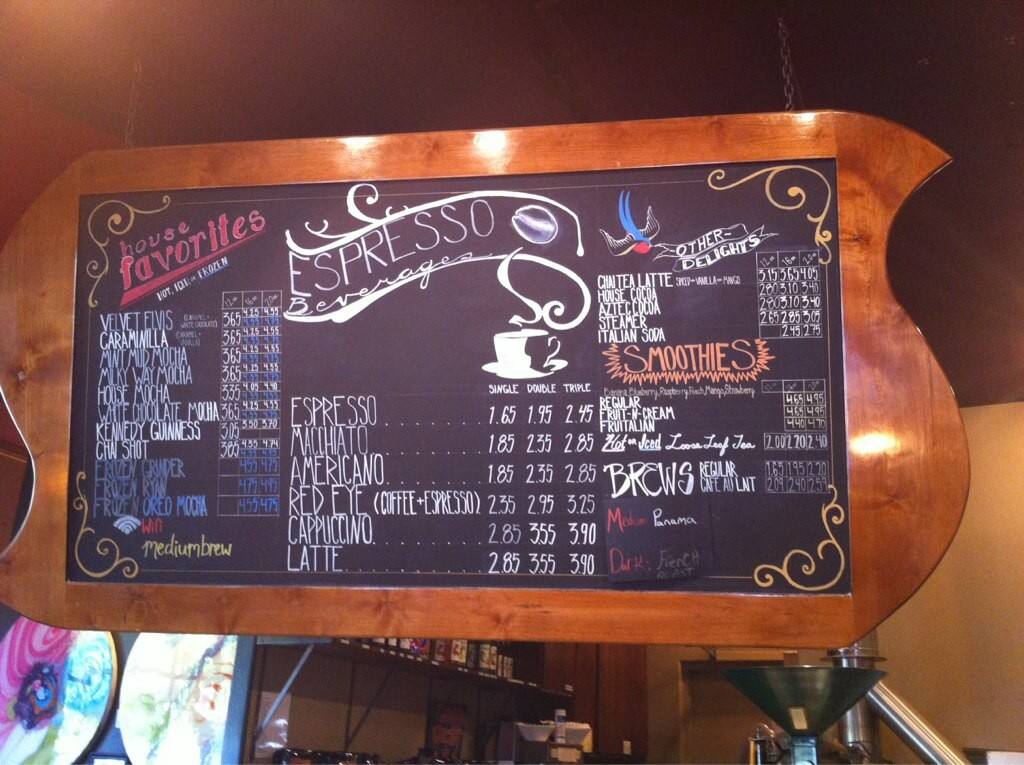 house
favorites
HOT, ICED or FROZEN
12oz 16oz 20oz
VELVET ELVIS (CARAMEL + WHITE CHOCOLATE) 3.65 4.25 4.55
CARAMUNILLA (CARAMEL + VANILLA) 3.65 4.25 4.55
MINT MUD MOCHA 3.65 4.25 4.55
MILKY WAY MOCHA 3.65 4.25 4.55
HOUSE MOCHA 3.35 4.05 4.40
WHITE CHOCOLATE MOCHA 3.65 4.25 4.55
KENNEDY GUINNESS 3.05 3.50 3.70
CHAI SHOT 3.85
FROZEN GRINDER 4.55 4.75
FROZEN
FROZEN OREO MOCHA 4.55 4.75
Wifi
mediumbrew
ESPRESSO
Beverages
SINGLE DOUBLE TRIPLE
ESPRESSO 1.65 1.95 2.45
MACCHIATO 1.85 2.35 2.85
AMERICANO 1.85 2.35 2.85
RED EYE (COFFEE+ESPRESSO) 2.35 2.95 3.25
CAPPUCCINO 2.85 3.55 3.90
LATTE 2.85 3.55 3.90
OTHER-
DELIGHTS
12oz 16oz 20oz
CHAI TEA LATTE SPICED-VANILLA-MANGO 3.15 3.65 4.05
HOUSE COCOA 2.80 3.10 3.40
AZTEC COCOA 2.80 3.10 3.40
STEAMER 2.65 2.85 3.05
ITALIAN SODA 2.45 2.75
SMOOTHIES
Banana, Blueberry, Raspberry, Peach, Mango, Strawberry
REGULAR 4.65 4.95
FRUIT-N-CREAM 4.65 4.95
FRUITALIAN 4.40 4.70
Hot or Iced Loose Leaf Tea 2.00 2.20 2.40
BREWS REGULAR 1.65 1.95 2.20
CAFE AU LAIT 2.09 2.40 2.59
Medium: Panama
Dark: French
ROAST